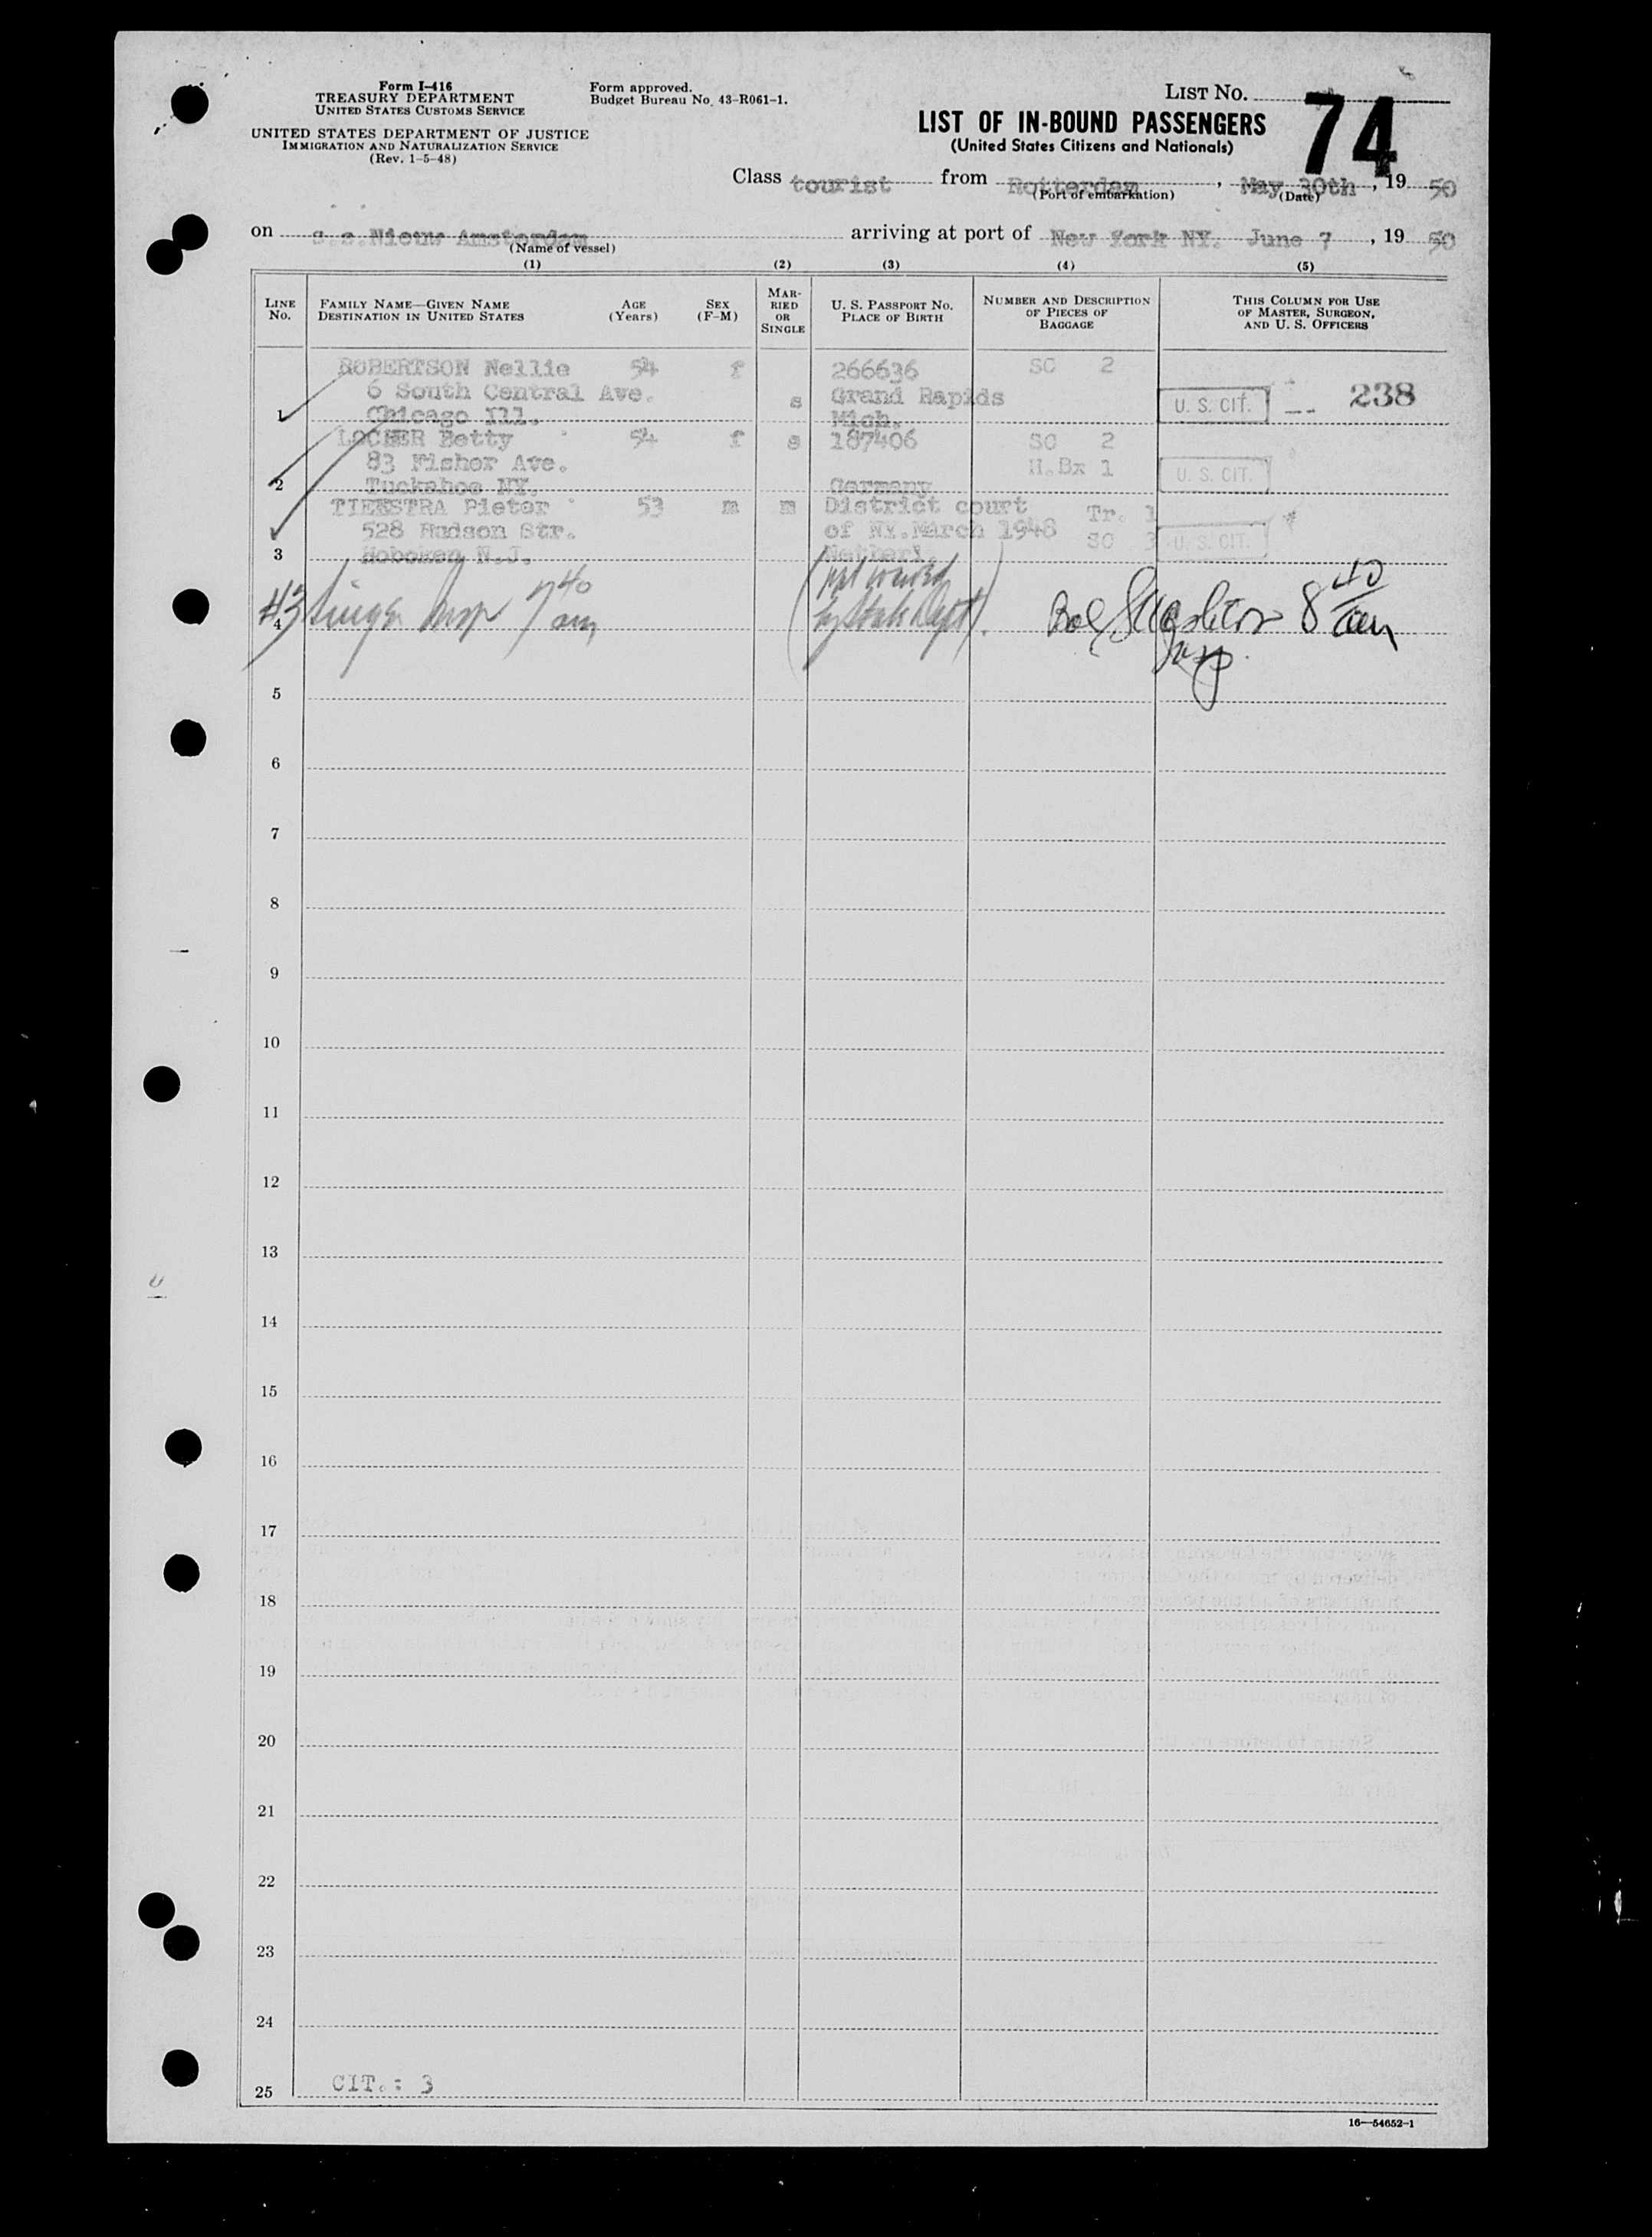 Form I-416
TREASURY DEPARTMENT
UNITED STATES CUSTOMS SERVICE
UNITED STATES DEPARTMENT OF JUSTICE
IMMIGRATION AND NATURALIZATION SERVICE
(Rev. 1-5-48)
Form approved.
Budget Bureau No. 43-R061-1.
LIST NO. 74
LIST OF IN-BOUND PASSENGERS
(United States Citizens and Nationals)
Class tourist from Rotterdam, May 30th, 19 50
(Port of embarkation) (Date)
on s.s.Nieuw Amsterdam arriving at port of New York NY. June 7, 19 50
(Name of vessel)
(1) (2) (3) (4) (5)
LINE NO.
FAMILY NAME—GIVEN NAME
DESTINATION IN UNITED STATES
AGE
(Years)
SEX
(F-M)
MAR-
RIED
OR
SINGLE
U. S. PASSPORT NO.
PLACE OF BIRTH
NUMBER AND DESCRIPTION
OF PIECES OF
BAGGAGE
THIS COLUMN FOR USE
OF MASTER, SURGEON,
AND U. S. OFFICERS
ROBERTSON Nellie 54 f 266636 SC 2
6 South Central Ave. s Grand Rapids U. S. CIT. 238
1 Chicago Ill. Mich.
LOCHER Betty 54 f s 187406 SC 2
83 Fisher Ave. H.Bx 1 U. S. CIT.
2 Tuckahoe NY. Germany
TIEKSTRA Pieter 53 m m District court Tr. 1
528 Hudson Str. of NY.March 1948 SC 3 U. S. CIT.
3 Hoboken N.J. Netherl.
#3 Insp 7 40 am
by State Dept). 8 40 am
4
Insp.
5
6
7
8
9
10
11
12
13
14
15
16
17
18
19
20
21
22
23
24
25 CIT.: 3
16—54652-1